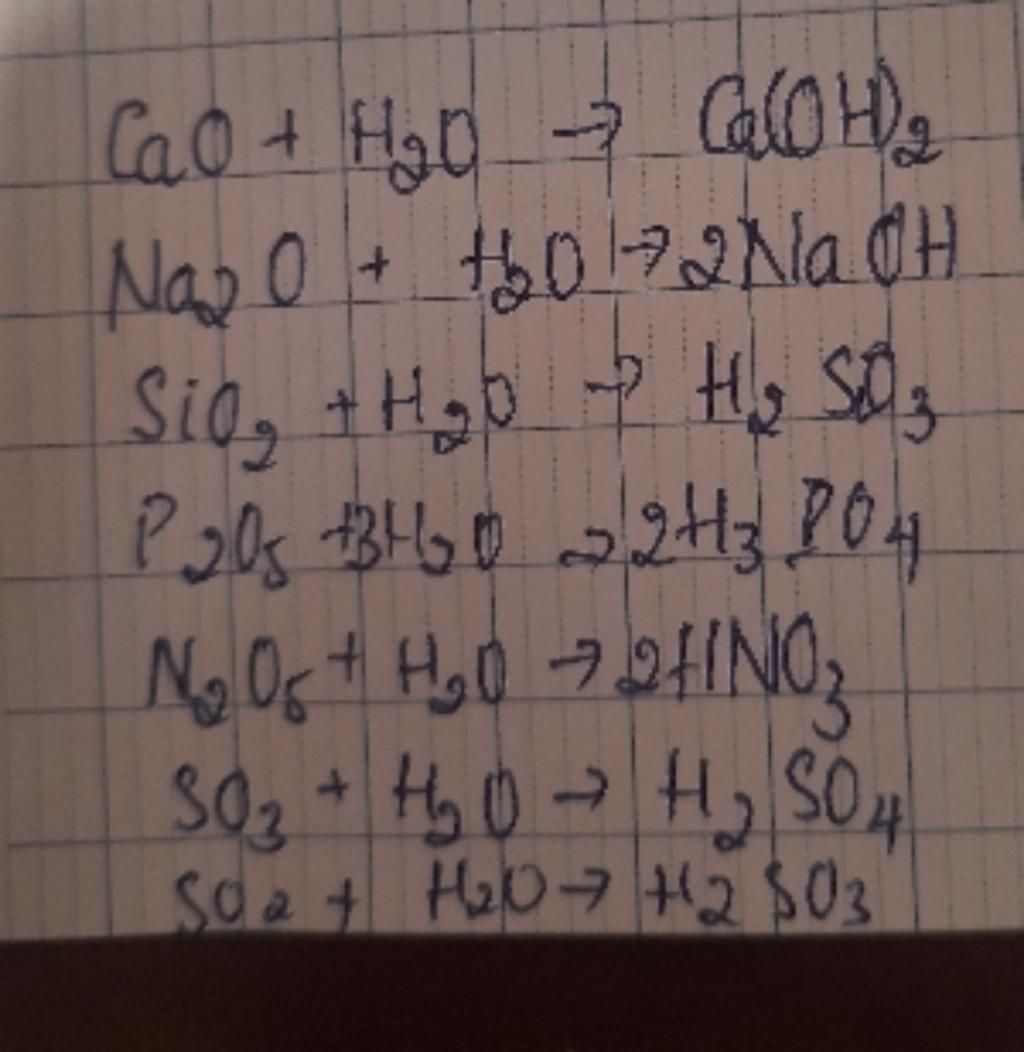 CaO + H₂O → Ca(OH)₂
Na₂O + H₂O → 2NaOH
SiO₂ + H₂O → H₂SO₃
P₂O₅ +3H₂O → 2H₃PO₄
N₂O₅ + H₂O → 2HNO₃
SO₃ + H₂O → H₂SO₄
SO₂ + H₂O → H₂SO₃